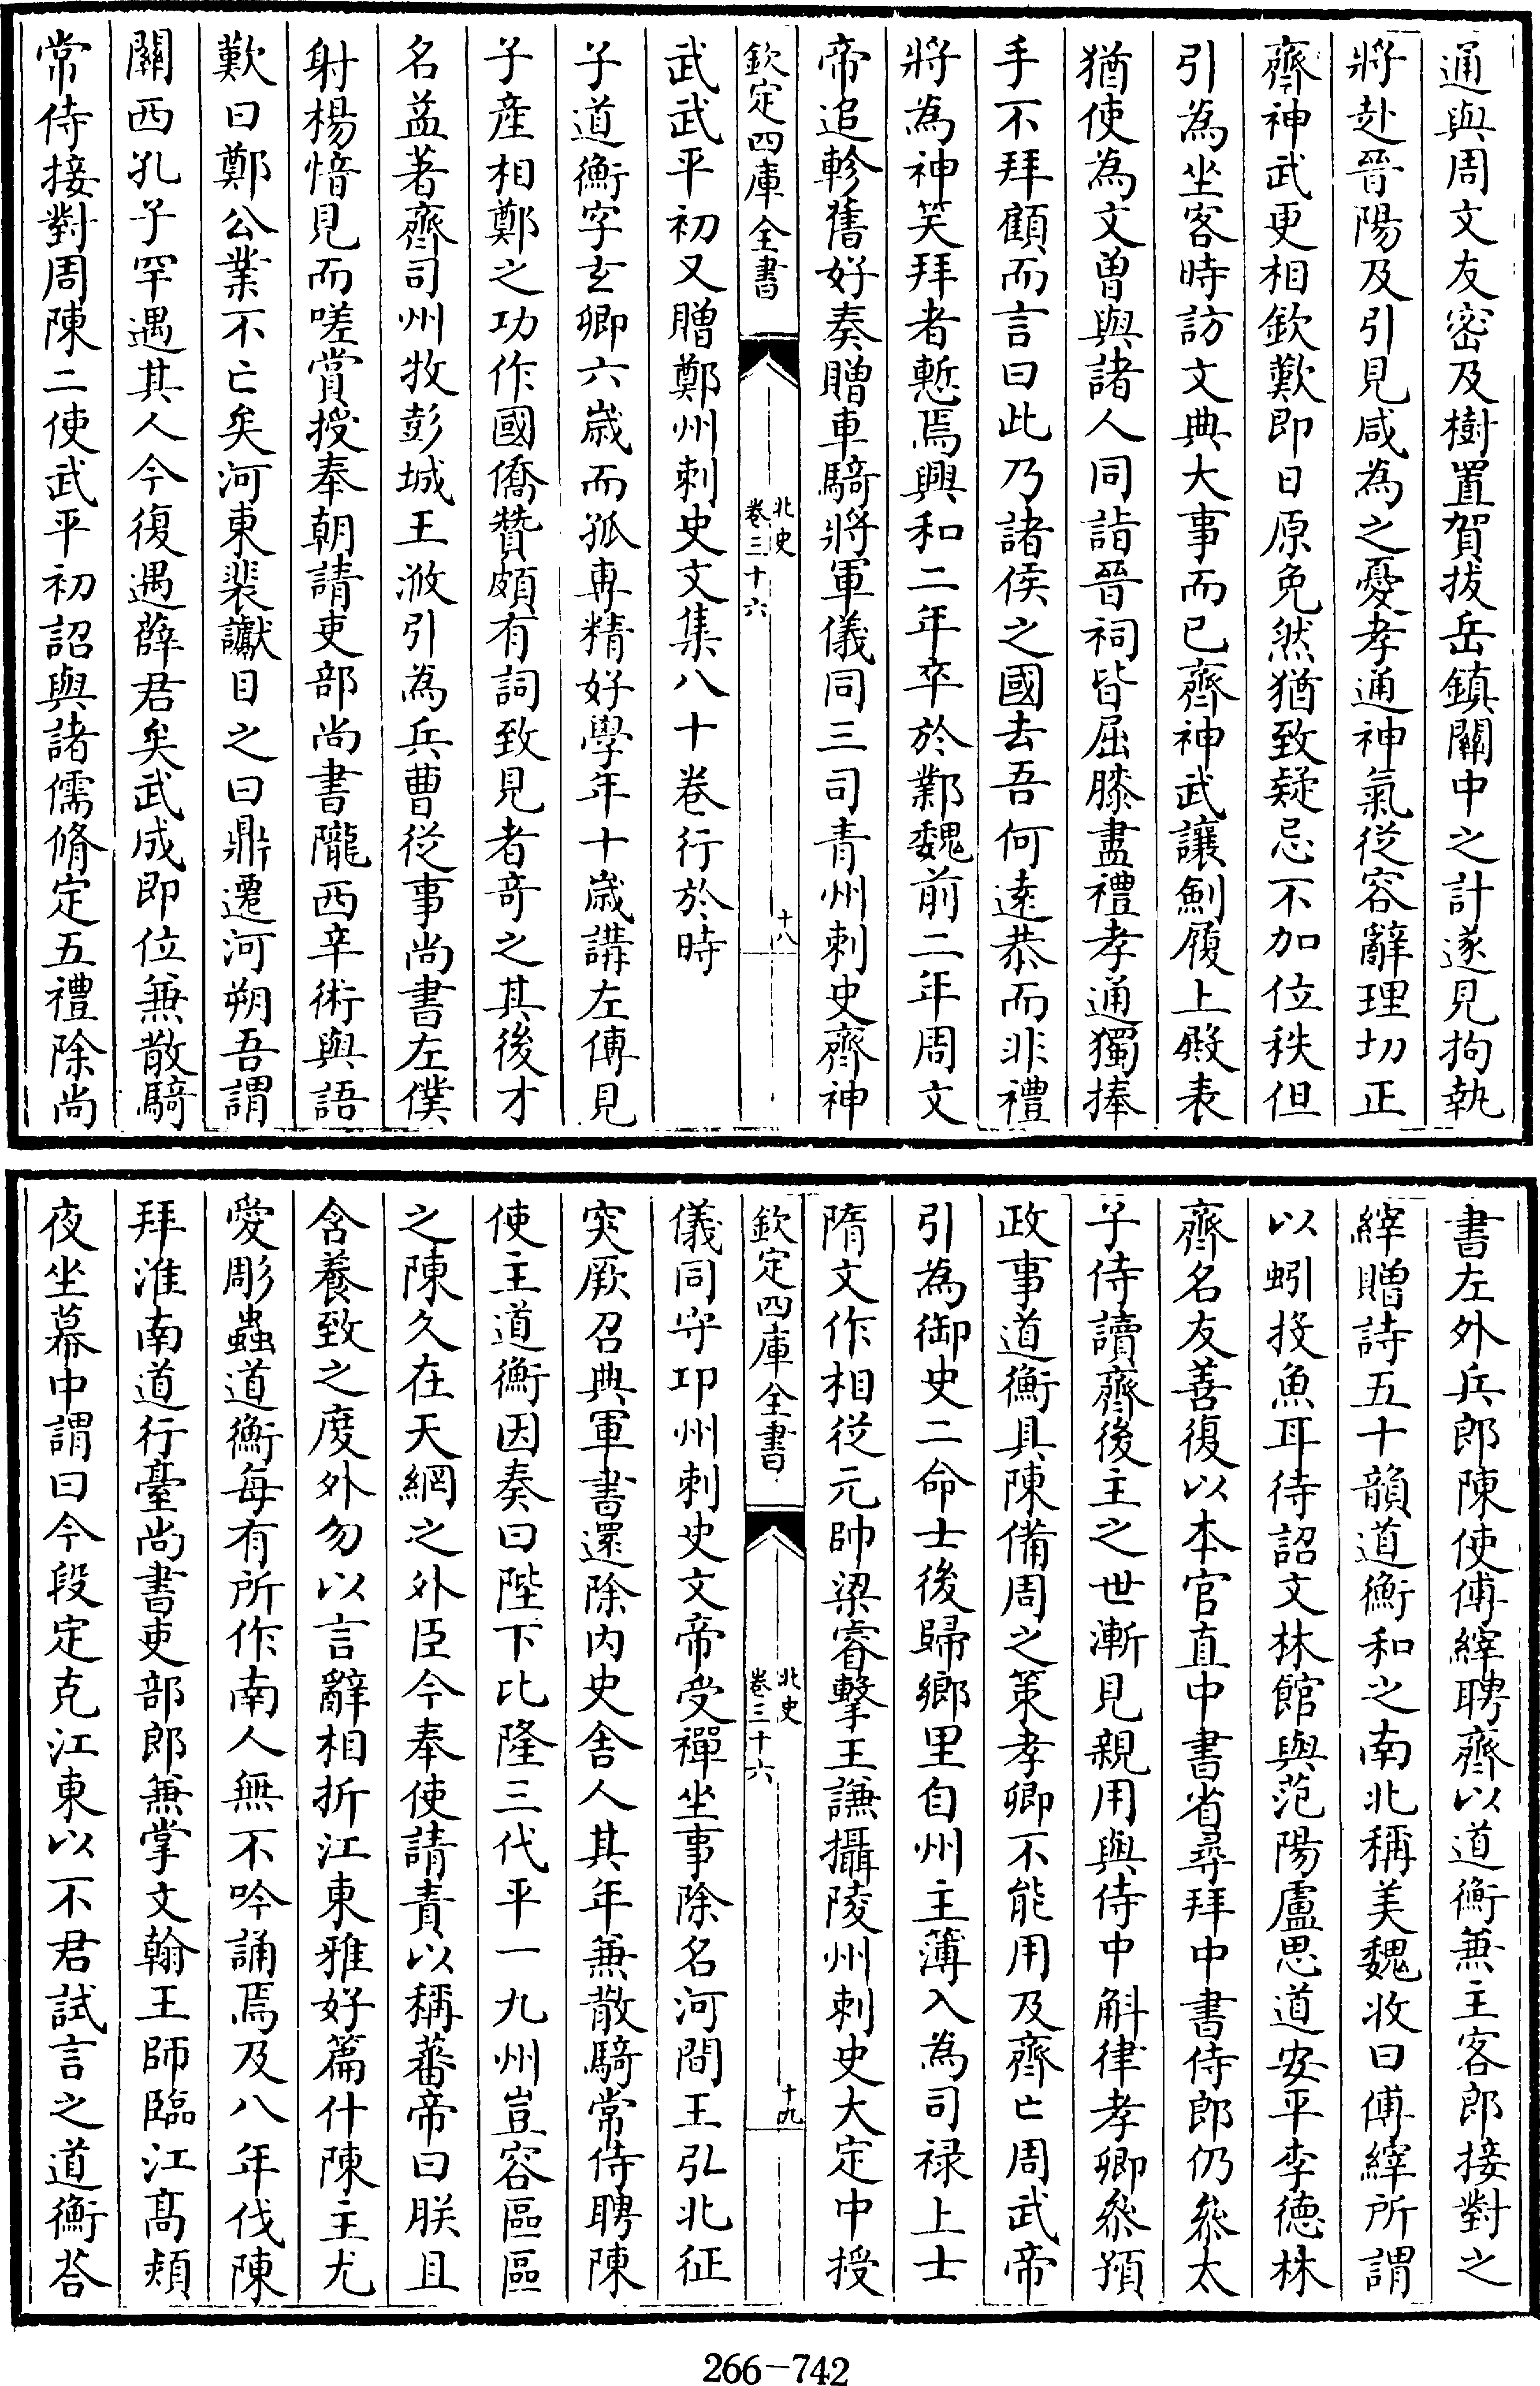 通與周文友密及樹置賀拔岳鎮關中之計遂見拘執
將赴晉陽及引見咸為之憂孝通神氣從容辭理切正
齊神武更相欽歎即日原免然猶致疑忌不加位秩但
引為坐客時訪文典大事而已齊神武讓劒履上殿表
猶使為文曽與諸人同詣晉祠皆屈膝盡禮孝通獨捧
手不拜顧而言曰此乃諸侯之國去吾何逺恭而非禮
將為神笑拜者慙焉興和二年卒於鄴魏前二年周文
帝追軫舊好奏贈車騎將軍儀同三司青州刺史齊神
欽定四庫全書
北史
卷三十六
十八
武武平初又贈鄭州刺史文集八十卷行於時
子道衡字𤣥卿六嵗而孤專精好學年十嵗講左傳見
子産相鄭之功作國僑贊頗有詞致見者竒之其後才
名益著齊司州牧彭城王浟引為兵曹從事尚書左僕
射楊愔見而嗟賞授奉朝請吏部尚書隴西辛術與語
歎曰鄭公業不亡矣河東裴讞目之曰鼎遷河朔吾謂
關西孔子罕遇其人今復遇薛君矣武成即位兼散騎
常侍接對周陳二使武平初詔與諸儒脩定五禮除尚
書左外兵郎陳使傅縡聘齊以道衡兼主客郎接對之
縡贈詩五十韻道衡和之南北稱美魏收曰傅縡所謂
以蚓投魚耳待詔文林館與范陽盧思道安平李德林
齊名友善復以本官直中書省尋拜中書侍郎仍參太
子侍讀齊後主之世漸見親用與侍中斛律孝卿參預
政事道衡具陳備周之策孝卿不能用及齊亡周武帝
引為御史二命士後歸鄉里自州主簿入為司禄上士
隋文作相從元帥梁睿擊王謙攝陵州刺史大定中授
欽定四庫全書
北史
卷三十六
十九
儀同守卭州刺史文帝受禪坐事除名河間王弘北征
突厥召典軍書還除内史舍人其年兼散騎常侍聘陳
使主道衡因奏曰陛下比隆三代平一九州豈容區區
之陳久在天網之外臣今奉使請責以稱蕃帝曰朕且
含養致之度外勿以言辭相折江東雅好篇什陳主尤
愛彫蟲道衡每有所作南人無不吟誦焉及八年伐陳
拜淮南道行臺尚書吏部郎兼掌文翰王師臨江髙熲
夜坐幕中謂曰今段定克江東以不君試言之道衡荅
266—742